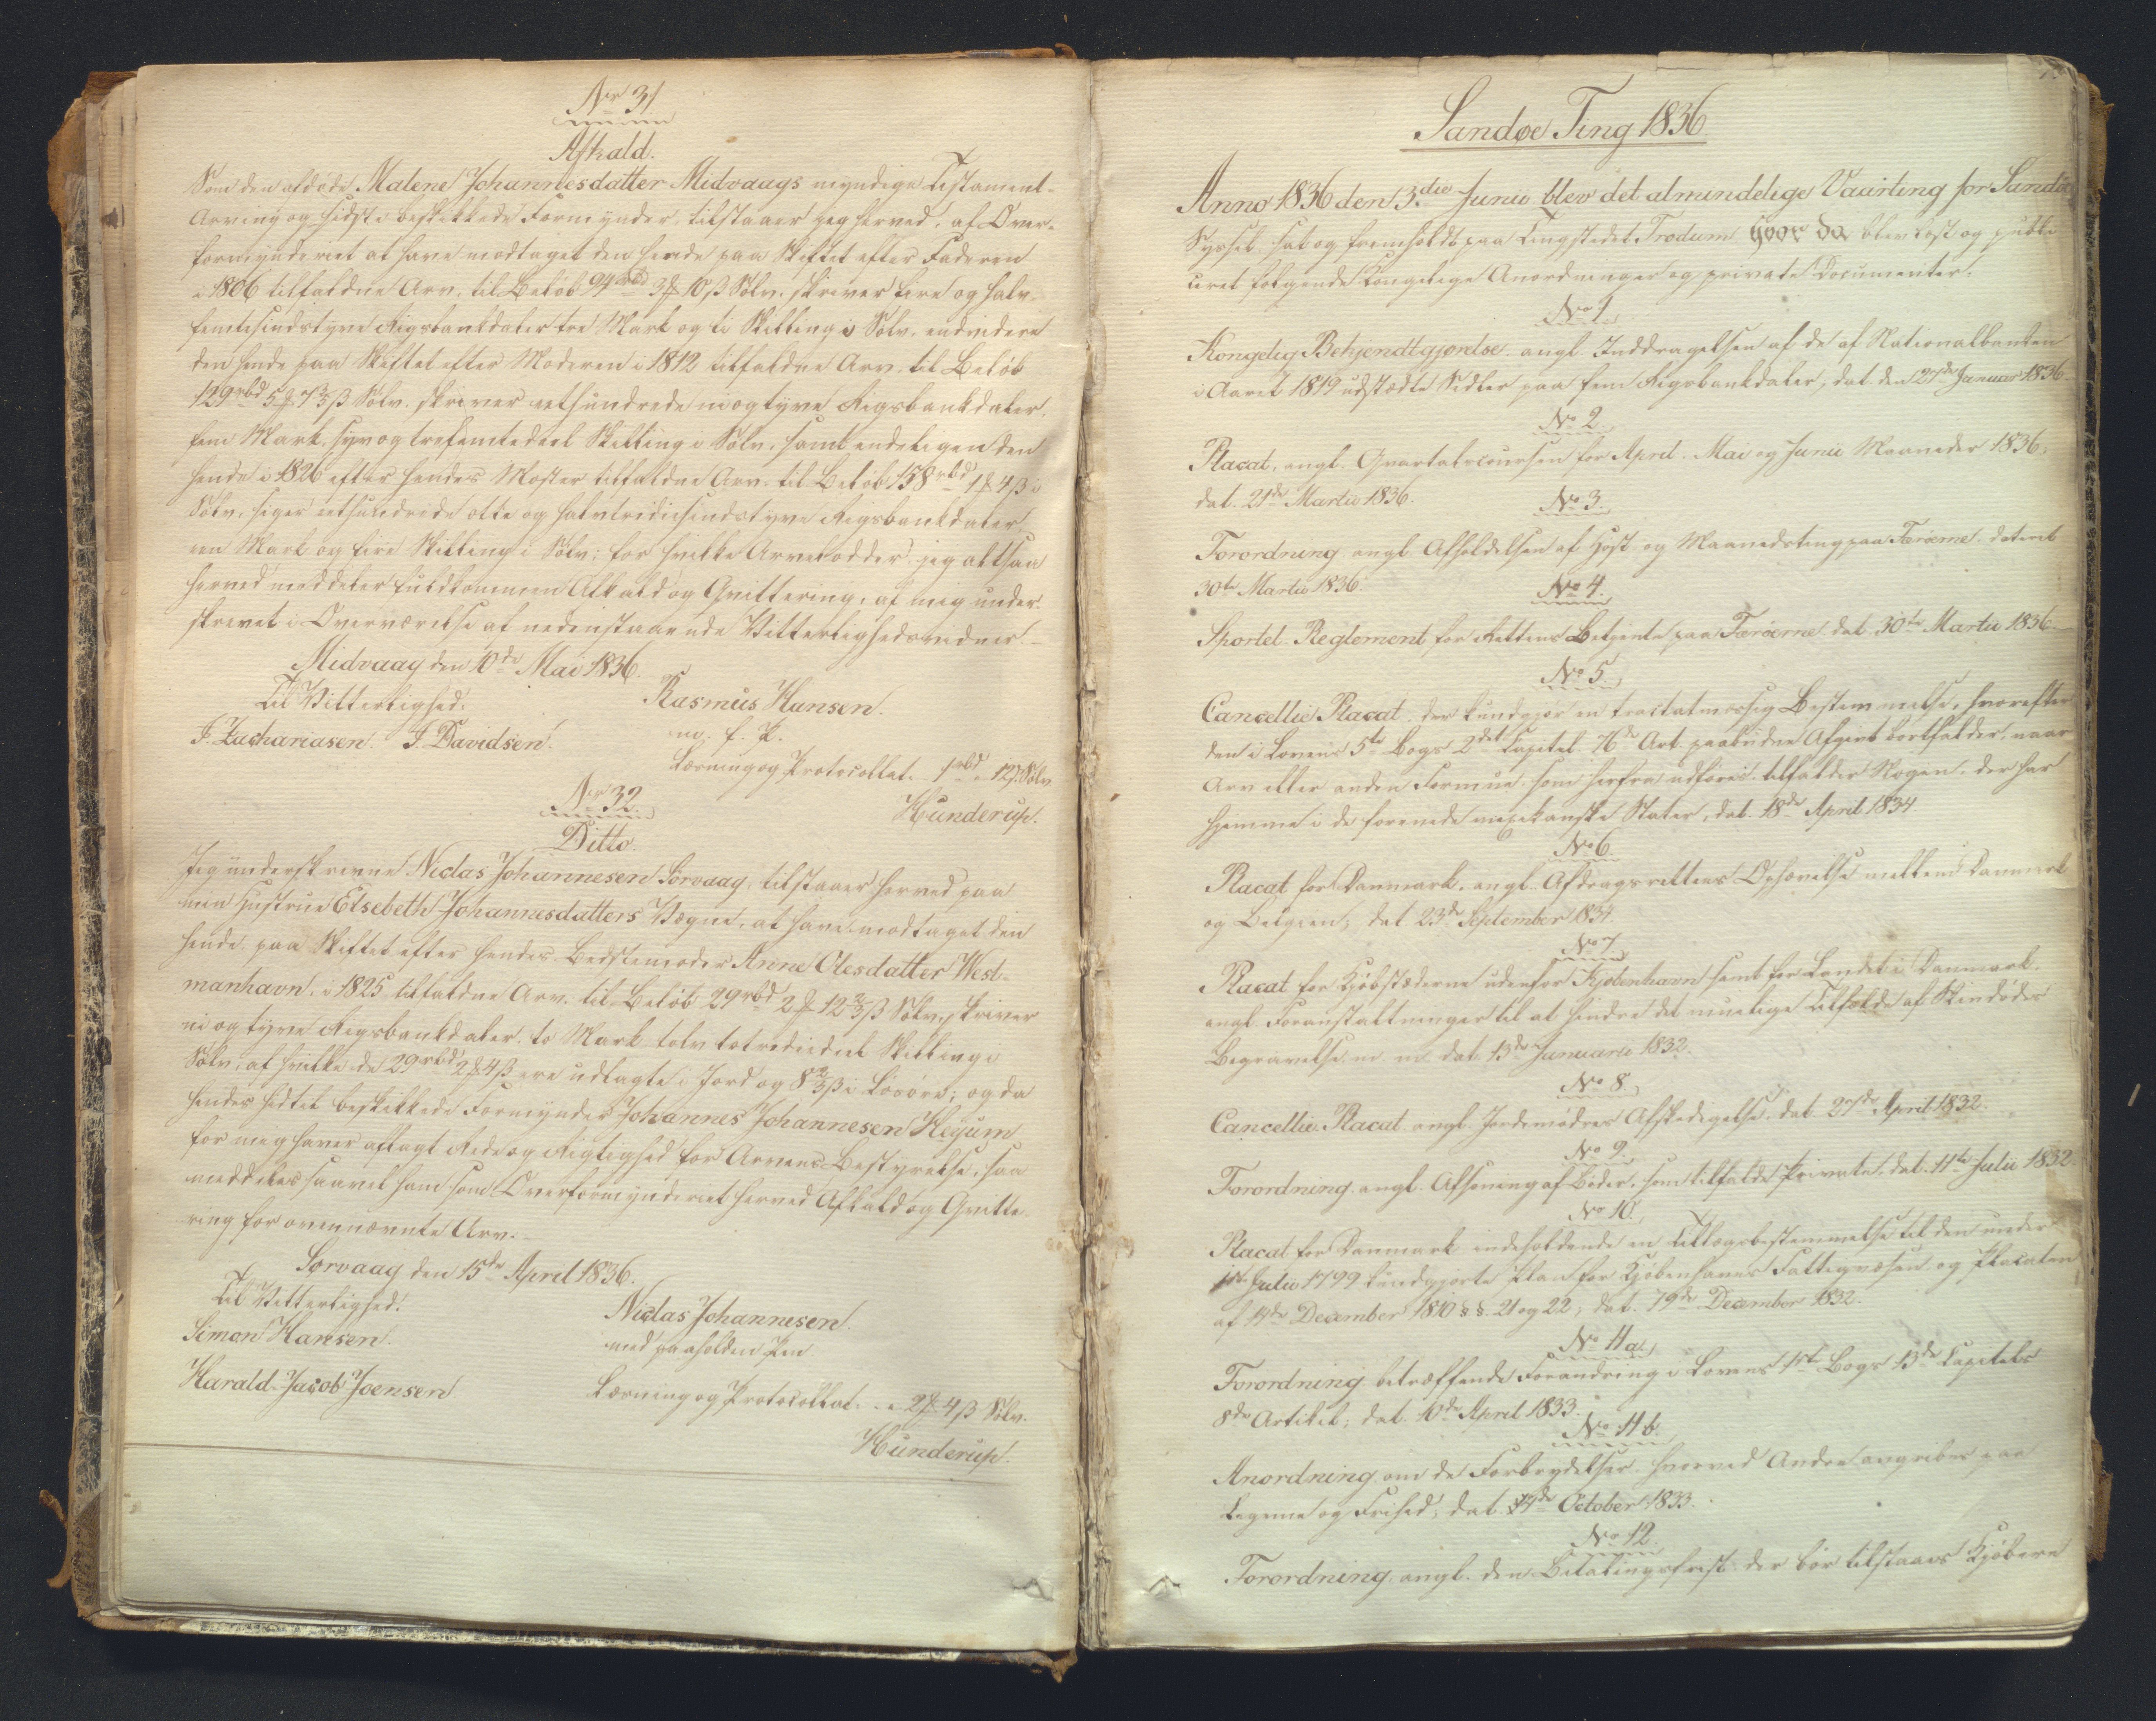 Nr 31
Afkald.
Som den afdøde Malene Johannesdatter Midvaags myndige Testament-
Arving og sidst beskikkede Formynder, tilstaaer jeg herved, af Over-
formynderiet at have modtaget den hende paa Skiftet efter Faderen
i 1806 tilfaldne Arv, til Beløb 94 rbd 3 ℳ 10 ß Sølv, skriver fire og halv-
femtesindstyve Rigsbankdaler tre Mark og ti Skilling i Sølv, endvidere
den hende paa Skiftet efter Moderen i 1812 tilfaldne Arv, til Beløb
129 rbd 5 ℳ 7 3/5 ß Sølv, skriver eethundrede niogtyve Rigsbankdaler,
fem Mark, syv og trefemtedeel Skilling i Sølv, samt endeligen den
hende i 1826 efter hendes Moster tilfaldne Arv, til Beløb 158 rbd 1 ℳ 4 ß i
Sølv, siger eethundrede otte og halvtrediesindstyve Rigsbankdaler
een Mark og fire Skilling i Sølv; for hvilke Arvelodder jeg altsaa
herved meddeler fuldkommen Afkald og Qvittering, af mig under-
skrevet i Overværelse af nedenstaaende Vitterlighedsvidner. –
Midvaag den 10de Mai 1836.
Til Vitterlighed: Rasmus Hansen.
J. Zachariasen. J. Davidsen. m. f. P.
Læsning og Protocollat. 1 rbd " 12 ß Sølv
Hunderup.
Nr 32.
Ditto.
Jeg underskrevne Niclas Johannesen Sørvaag, tilstaaer herved paa
min Hustrue Elsebeth Johannesdatters Vegne, at have modtaget den
hende paa Skiftet efter hendes Bedstemoder Anne Olesdatter West-
manhavn, i 1825 tilfaldne Arv, til Beløb 29 rbd 2 ℳ 12 2/3 ß Sølv, skriver
ni og tyve Rigsbankdaler, to Mark tolv totrediedeel Skilling i
Sølv, af hvilke de 29 rbd 2 ℳ 4 ß ere udlagte i Jord og 8 2/3 ß i Løsøre; og da
hendes hidtil beskikkede Formynder Johannes Johannesen Heyum
for mig haver aflagt Rede og Rigtighed for Arvens Bestyrelse, saa
meddeles saavel ham som Overformynderiet herved Afkald og Qvitte-
ring for ovennævnte Arv. –
Sørvaag den 15de April 1836.
Til Vitterlighed: Niclas Johannesen.
Simon Hansen. med paaholden Pen
Harald Jacob Joensen Læsning og Protocollat. " 2 ℳ 4 ß Sølv.
Hunderup.
Sandøe Ting 1836
Anno 1836 den 13die Junii blev det almindelige Vaarting for Sandøe
Syssel sat og fremholdt paa Tingstedet Trodum hvor da blev læst og publi-
ceret følgende Kongelige Anordninger og private Documenter.
No 1.
Kongelig Bekjendtgjørelse angl. Inddragelsen af de af Nationalbanken
i Aaret 1819 udstædte Sedler paa fem Rigsbankdaler, dat. den 27de Januar 1836
No 2.
Placat, angl. Qvartalscoursen for April, Mai og Junii Maaneder 1836,
dat. 21de Martii 1836.
No 3.
Forordning angl. Afholdelsen af Høst- og Maanedsting paa Færøerne, dateret
30te Martii 1836.
No 4.
Sportel-Reglement for Rettens Betjente paa Færøerne, dat. 30te Martii 1836.
No 5.
Cancellie Placat, der kundgjør en tractatmæssig Bestemmelse, hvorefter
den i Lovens 5te Bogs 2det Kapitel 76de Art. paabudne Afgivt bortfalder, naar
Arv eller anden Formue som herfra udføres, tilfalder Nogen, der har
hjemme i de forenede mexikanske Stater, dat. 18de April 1834
No 6.
Placat for Danmark, angl. Afdragsrettens Ophævelse mellem Danmark
og Belgien; dat. 23de September 1834.
No 7.
Placat for Kjøbstæderne udenfor Kjøbenhavn samt for Landet i Danmark,
angl. Foranstaltninger til at hindre det muelige Tilfælde af Skindødes
Begravelse m. m. dat. 13de Januarii 1832.
No 8.
Cancellie Placat angl. Jordemødres Afskedigelse, dat. 27de April 1832.
No 9.
Forordning angl. Afsoning af Bøder, som tilfalde Private, dat. 11te Julii 1832
No 10.
Placat for Danmark indeholdende en Tillægsbestemmelse til den under
1ste Julii 1799 kundgjorte Plan for Kjøbenhavns Fattigvæsen og Placaten
af 14de December 1810 §§. 21 og 22, dat. 19de December 1832.
No 11a.
Forordning betræffende Forandring i Lovens 1ste Bogs 13de Capitels
8de Artikel; dat. 10de April 1833.
No 11b.
Anordning om de Forbrydelser, hvorved Andre angribes paa
Legeme og Frihed, dat. 4de October 1833.
No 12.
Forordning angl. den Betalingsfrist der bør tilstaaes Kjøbere